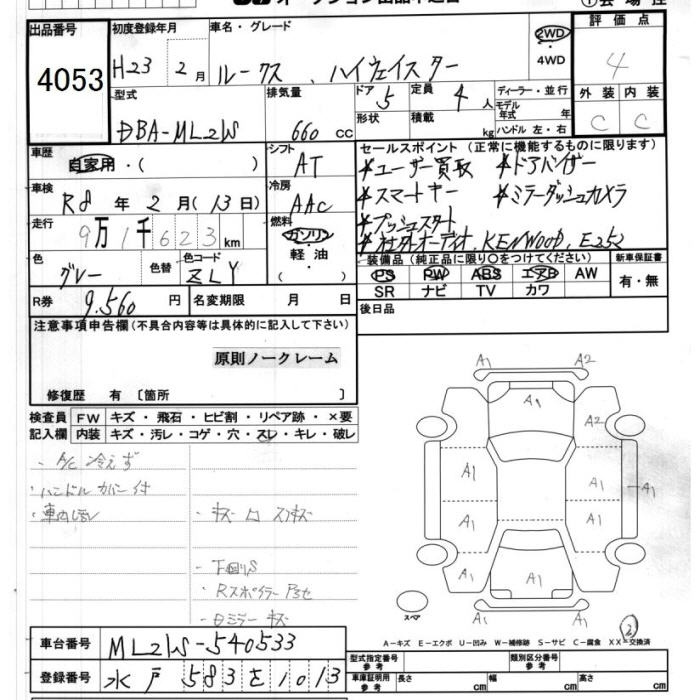 出品番号
4053
初度登録年月
H23 2月
車名・グレード
ルークス、ハイウェイスター
2WD
・
4WD
評価点
4
外装 内装
C C
型式
DBA-ML21S
排気量
660 cc
ドア
5
定員
4人
形状
積載
kg
ディーラー・並行
モデル
年式 年
ハンドル 左・右
車歴
自家用・( )
シフト
AT
車検
R8年2月(13日)
冷房
AAC
走行
9万1千623km
燃料
ガソリン
・
軽油
・
( )
色
グレー
色替
色コード
ZLY
R券
9.560円
名変期限 月 日
セールスポイント (正常に機能するものに限ります)
*ユーザー買取 *ドアバイザー
*スマートキー *ミラーダッシュカメラ
*プッシュスタート
*社外オーディオ,KENWOOD,E252
装備品(純正品に限り〇をつけてください)
PS PW ABS エアB AW
SR ナビ TV カワ
新車保証書
有・無
後日品
注意事項申告欄(不具合内容等は具体的に記入して下さい)
原則ノークレーム
修復歴 有 [箇所 ]
検査員
記入欄
FW キズ・飛石・ヒビ割・リペア跡・×要
内装 キズ・汚レ・コゲ・穴・スレ・キレ・破レ
・A/C 冷えず
・ハンドル カバー付
・キズ
・下廻りS
・Rスポイラー
・ミラー キズ
A1 A2
A1
A2
A1 A1
A1 A1
A1 A1
A1 A1 A1
A1 A1
スペア
2
A-キズ E-エクボ U-凹み W-補修跡 S-サビ C-腐食 XX-交換済
車台番号
ML21S-540533
登録番号
水戸 583 を 1013
型式指定番号
参考
類別区分番号
参考
車庫証明用
参考
長さ cm
幅 cm
高さ cm